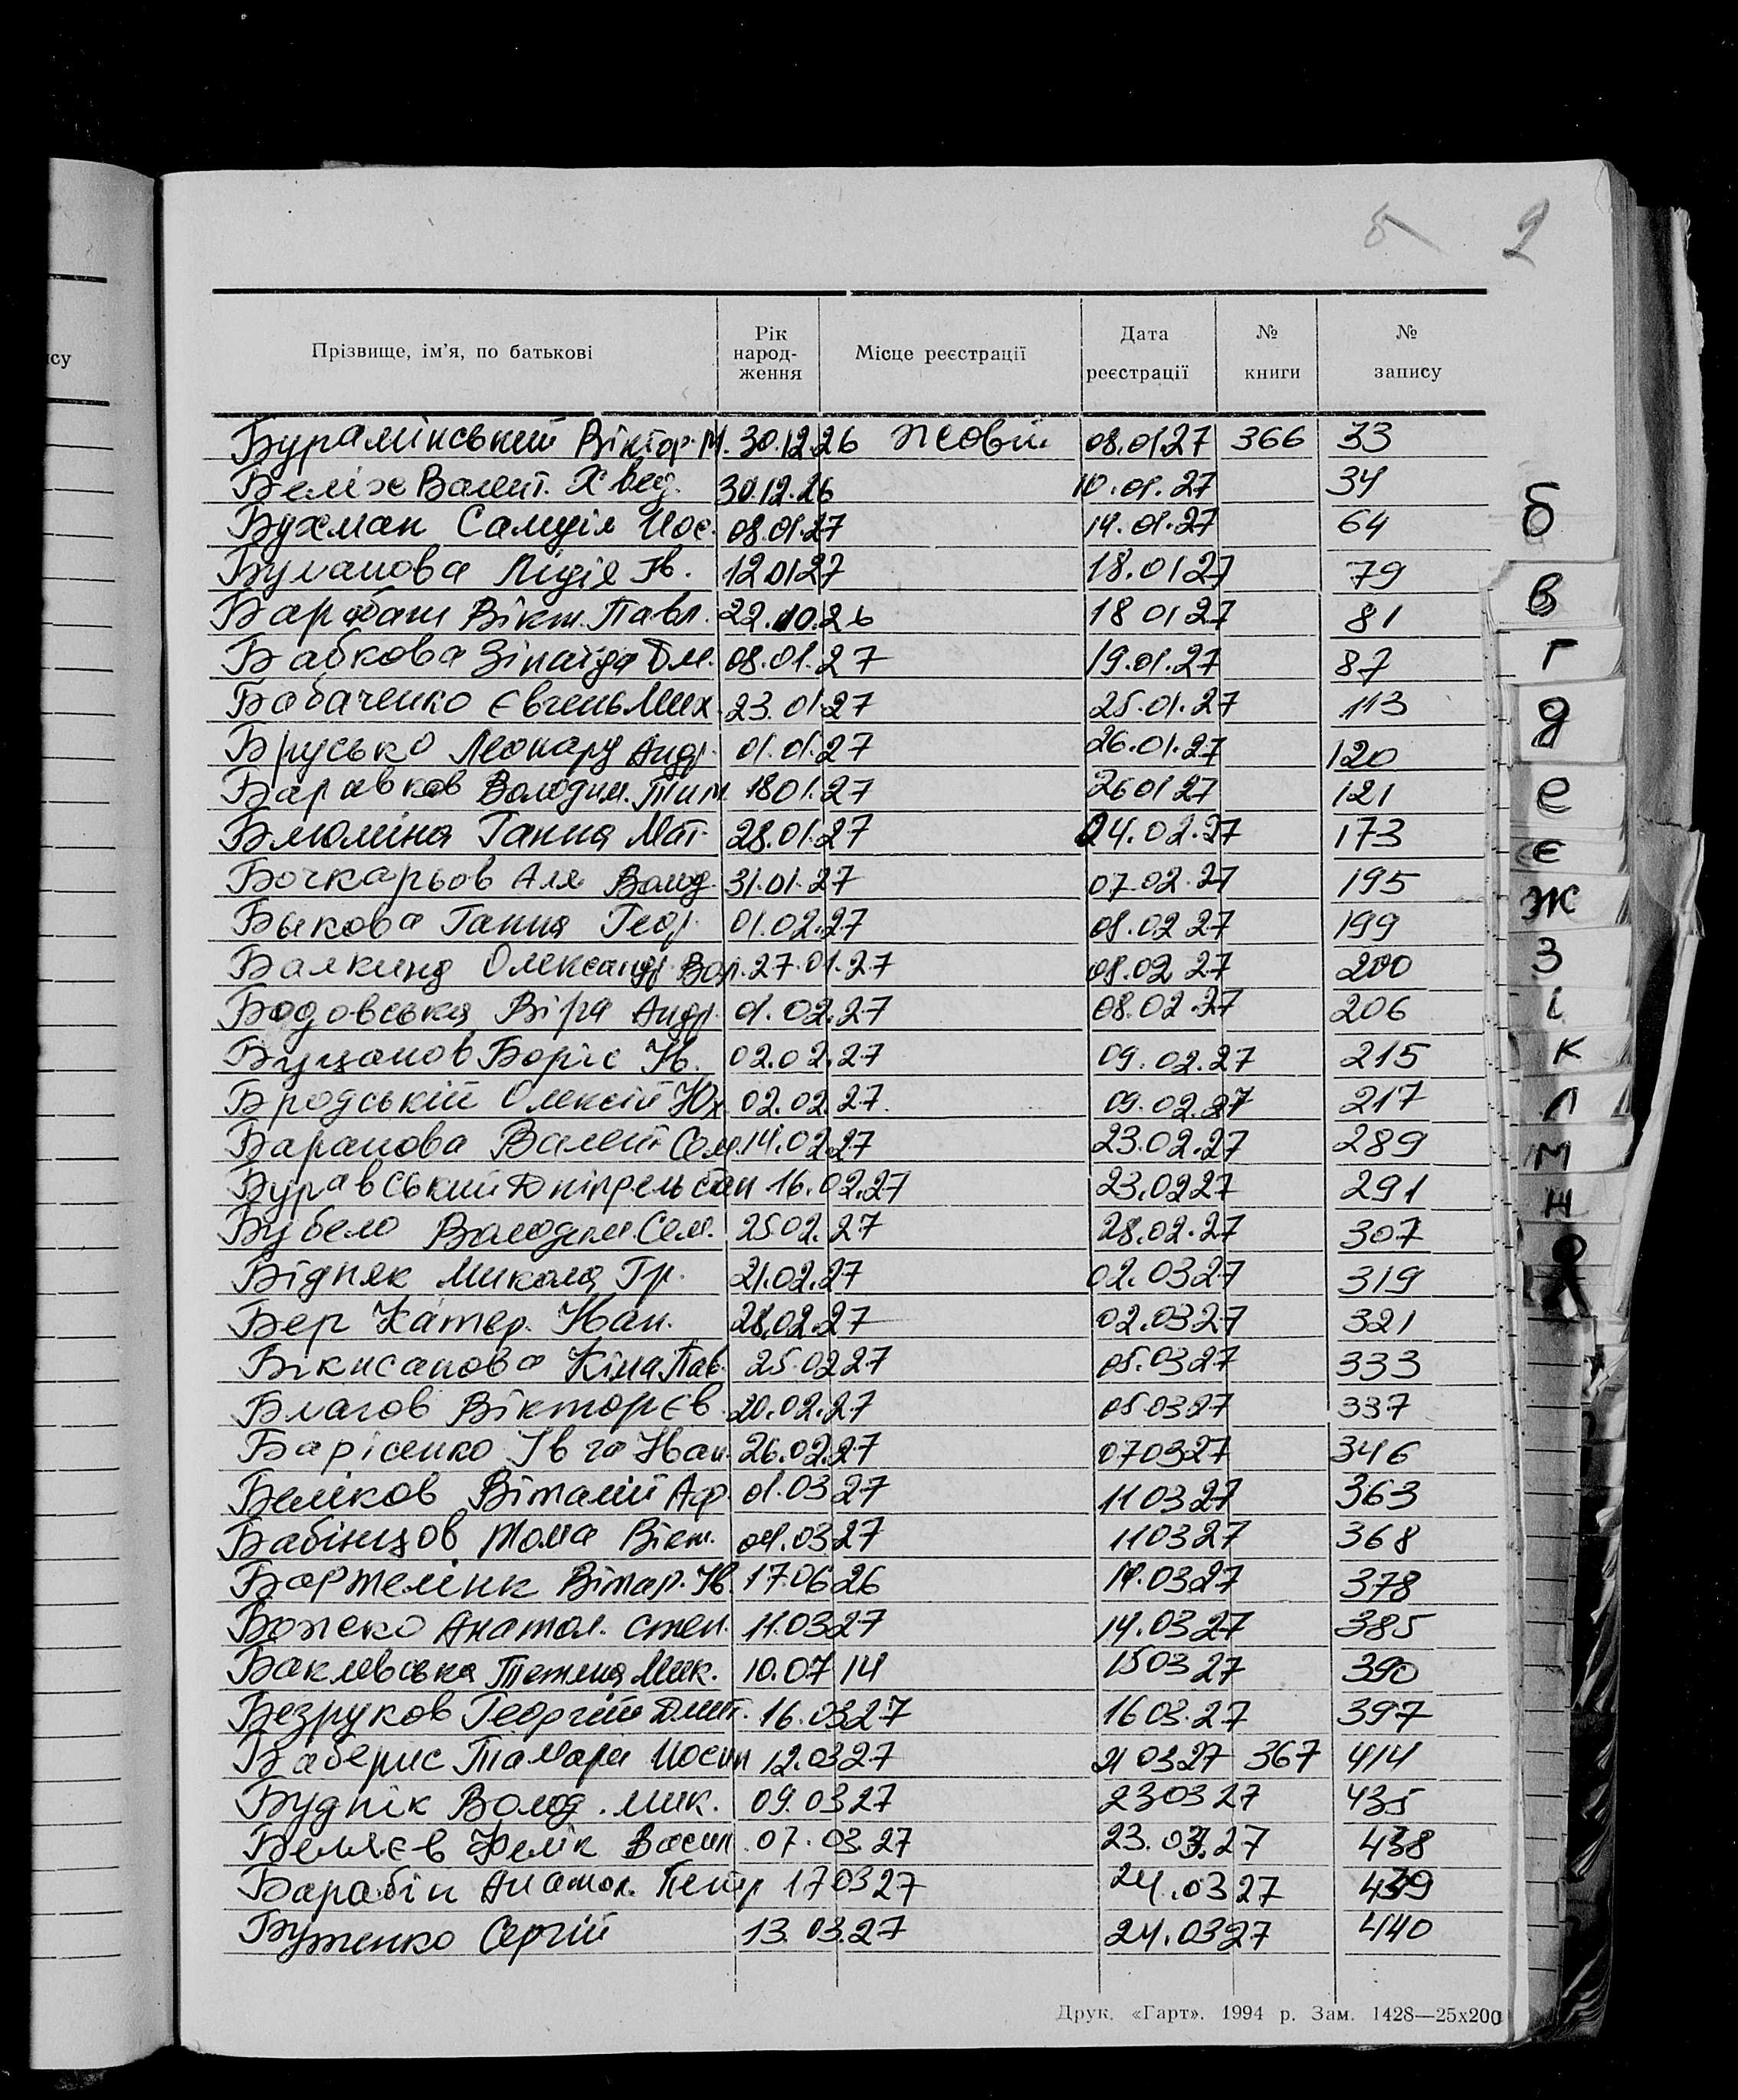 б 9
Прізвище, ім'я, по батькові Рік народ-ження Місце реєстрації Дата реєстрації № книги № запису
Бурамінський Віктор М. 30.12.26 Жовтн 08.01.27 366 33
Беліх Валент. Хвед. 30.12.26 10.01.27 34
Бухман Самуіл Иос. 08.01.27 14.01.27 64
Буланова Лідія Ів. 12.01.27 18.01.27 79
Барабаш Вікт. Павл. 22.10.26 18 01 27 81
Бабкова Зінаїда Дм. 08.01.27 19.01.27 87
Бабаченко Євгень Мих. 23.01.27 25.01.27 113
Брусько Леонард Андр. 01.01.27 26.01.27 120
Володим. Тим. 18 01.27 26 01 27 121
Блюміна Ганна Мат. 28.01.27 04.02.27 173
Бочкарьов Аля Волод. 31.01.27 07.02.27 195
Быкова Ганна Геор. 01.02.27 08.02 27 199
Балкинд Олександр 27.01.27 08.02 27 200
Бодовська Віра Андр. 01.02.27 08.02.27 206
Боріс Ів. 02.02.27 09.02.27 215
Бродській Олексій Юх. 02.02.27. 09.02.27 217
Баранова Валент Сем. 14.02.27 23.02.27 289
Буравський 16.02.27 23.02 27 291
Бубело Володим. Сем. 25 02.27 28.02.27 307
Бідняк Микола Гр. 21.02.27 02.03 27 319
Бер Катер. Іван. 28.02.27 02.03 27 321
Бікнсанова Кіма Пав. 25.02 27 05.03 27 333
Благов Віктор Єв. 20.02.27 05 03 27 337
Барісенко Івга Іван. 26.02.27 07 03 27 346
Беліков Віталій Аф. 01.03 27 11 03 27 363
Бабінцов Тома Вікт. 04.03 27 11 03 27 368
Бартелінк Ів. 17.06 26 14.03 27 378
Божеко Анатол. Степ. 11.03 27 14.03 27 385
Баклевська Тетяна Мик. 10.07 14 15 03 27 390
Безруков Георгій Дмит. 16.03 27 16 03.27 397
Баберис Тамара Иосип 12.03 27 21 03 27 367 414
Буднік Волод. Мик. 09.03 27 23 03 27 435
Беляєв Фелік Васил. 07.03.27 23.03.27 438
Барабін Анатол. Петр 17 03 27 24.03 27 439
Бутенко Сергій 13.03.27 24.03 27 440
Друк. «Гарт». 1994 р. Зам. 1428—25х200
су
б
в
г
д
е
є
ж
з
і
к
л
м
н